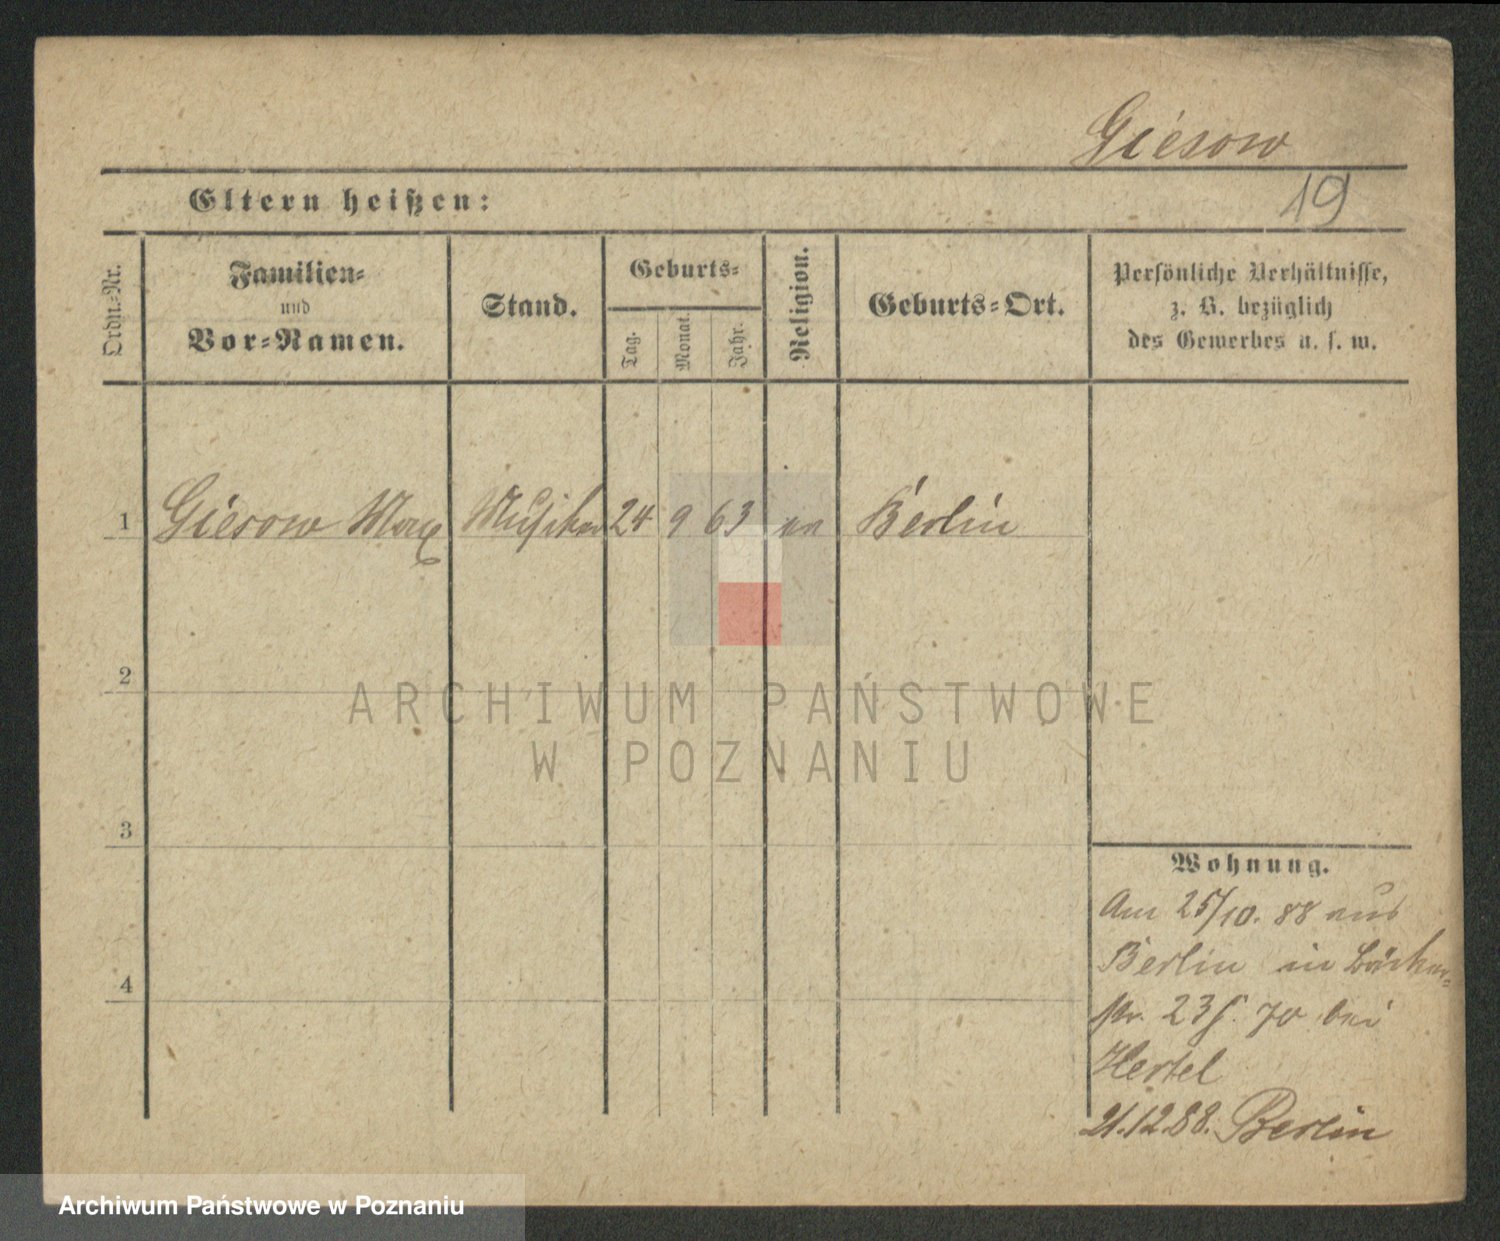 Giesow
19
Eltern heißen:
Ordn.-Nr.
Familien-
und
Vor-Namen.
Stand.
Geburts-
Tag.
Monat.
Jahr.
Religion.
Geburts-Ort.
Persönliche Verhältnisse,
z. B. bezüglich
des Gewerbes u. s. w.
1 Giesow Max Musiker 24 9 63 ev Berlin
2
3
4
Wohnung.
Am 25/10. 88 aus
Berlin in Bäcker-
str. 23 70 bei
Hertel
21.12.88. Berlin
ARCHIWUM PAŃSTWOWE
W POZNANIU
Archiwum Państwowe w Poznaniu